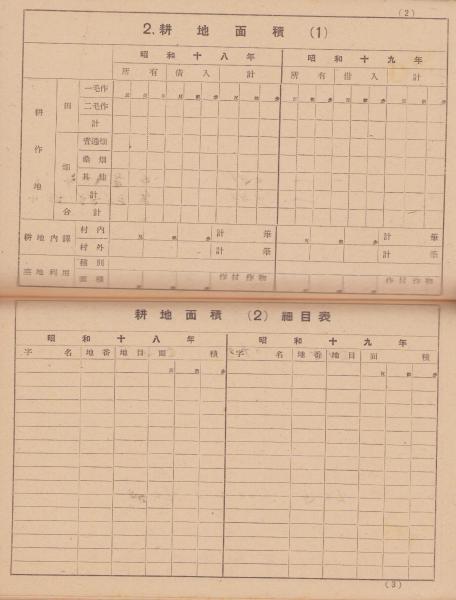 (2)
2. 耕地面積 (1)
昭和十八年 昭和十九年
所有 借入 計 所有 借入 計
耕作地 田 一毛作
二毛作
計
畑 普通畑
桑畑
其他
計
合計
耕地内訳 村内 計 筆 計 筆
村外 計 筆 計 筆
蓄地利用 種別
面積 作付作物 作付作物
耕地面積 (2) 細目表
昭和十八年 昭和十九年
字名 地番 地目 面積 字名 地番 地目 面積
(3)